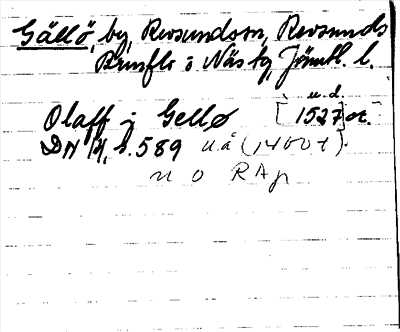 Gällö, by, Revsunds sn, Revsunds
Brunflo o Näs tg, Jämtl. l.
u.d.
Olaff i Gellø [1527] or.
DN 14, s. 589 u å (1400 t)
n o RAp